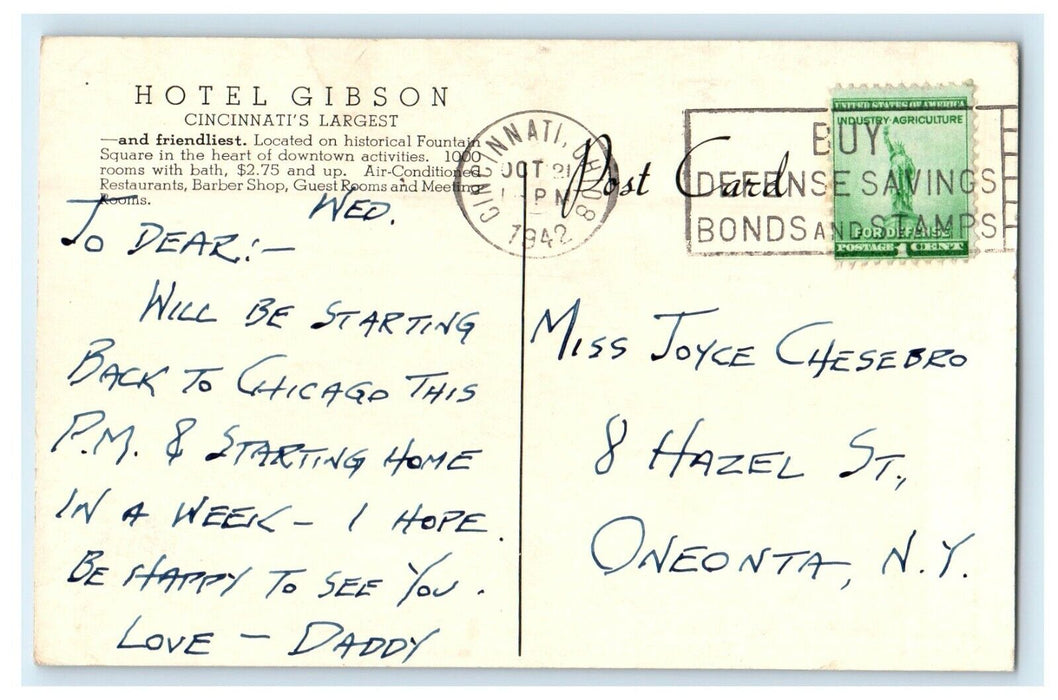 HOTEL GIBSON
CINCINNATI'S LARGEST
—and friendliest. Located on historical Fountain
Square in the heart of downtown activities. 1000
rooms with bath, $2.75 and up. Air-Conditioned
Restaurants, Barber Shop, Guest Rooms and Meeting
Rooms.
WED.
TO DEAR:—
WILL BE STARTING
BACK TO CHICAGO THIS
P.M. & STARTING HOME
IN A WEEK — I HOPE.
BE HAPPY TO SEE YOU.
LOVE — DADDY
CINCINNATI, OHIO
OCT 21
PM
1942
Post Card
BUY
DEFENSE SAVINGS
BONDS AND STAMPS
UNITED STATES OF AMERICA
INDUSTRY·AGRICULTURE
FOR DEFENSE
POSTAGE 1 CENT
MISS JOYCE CHESEBRO
8 HAZEL ST.,
ONEONTA, N.Y.